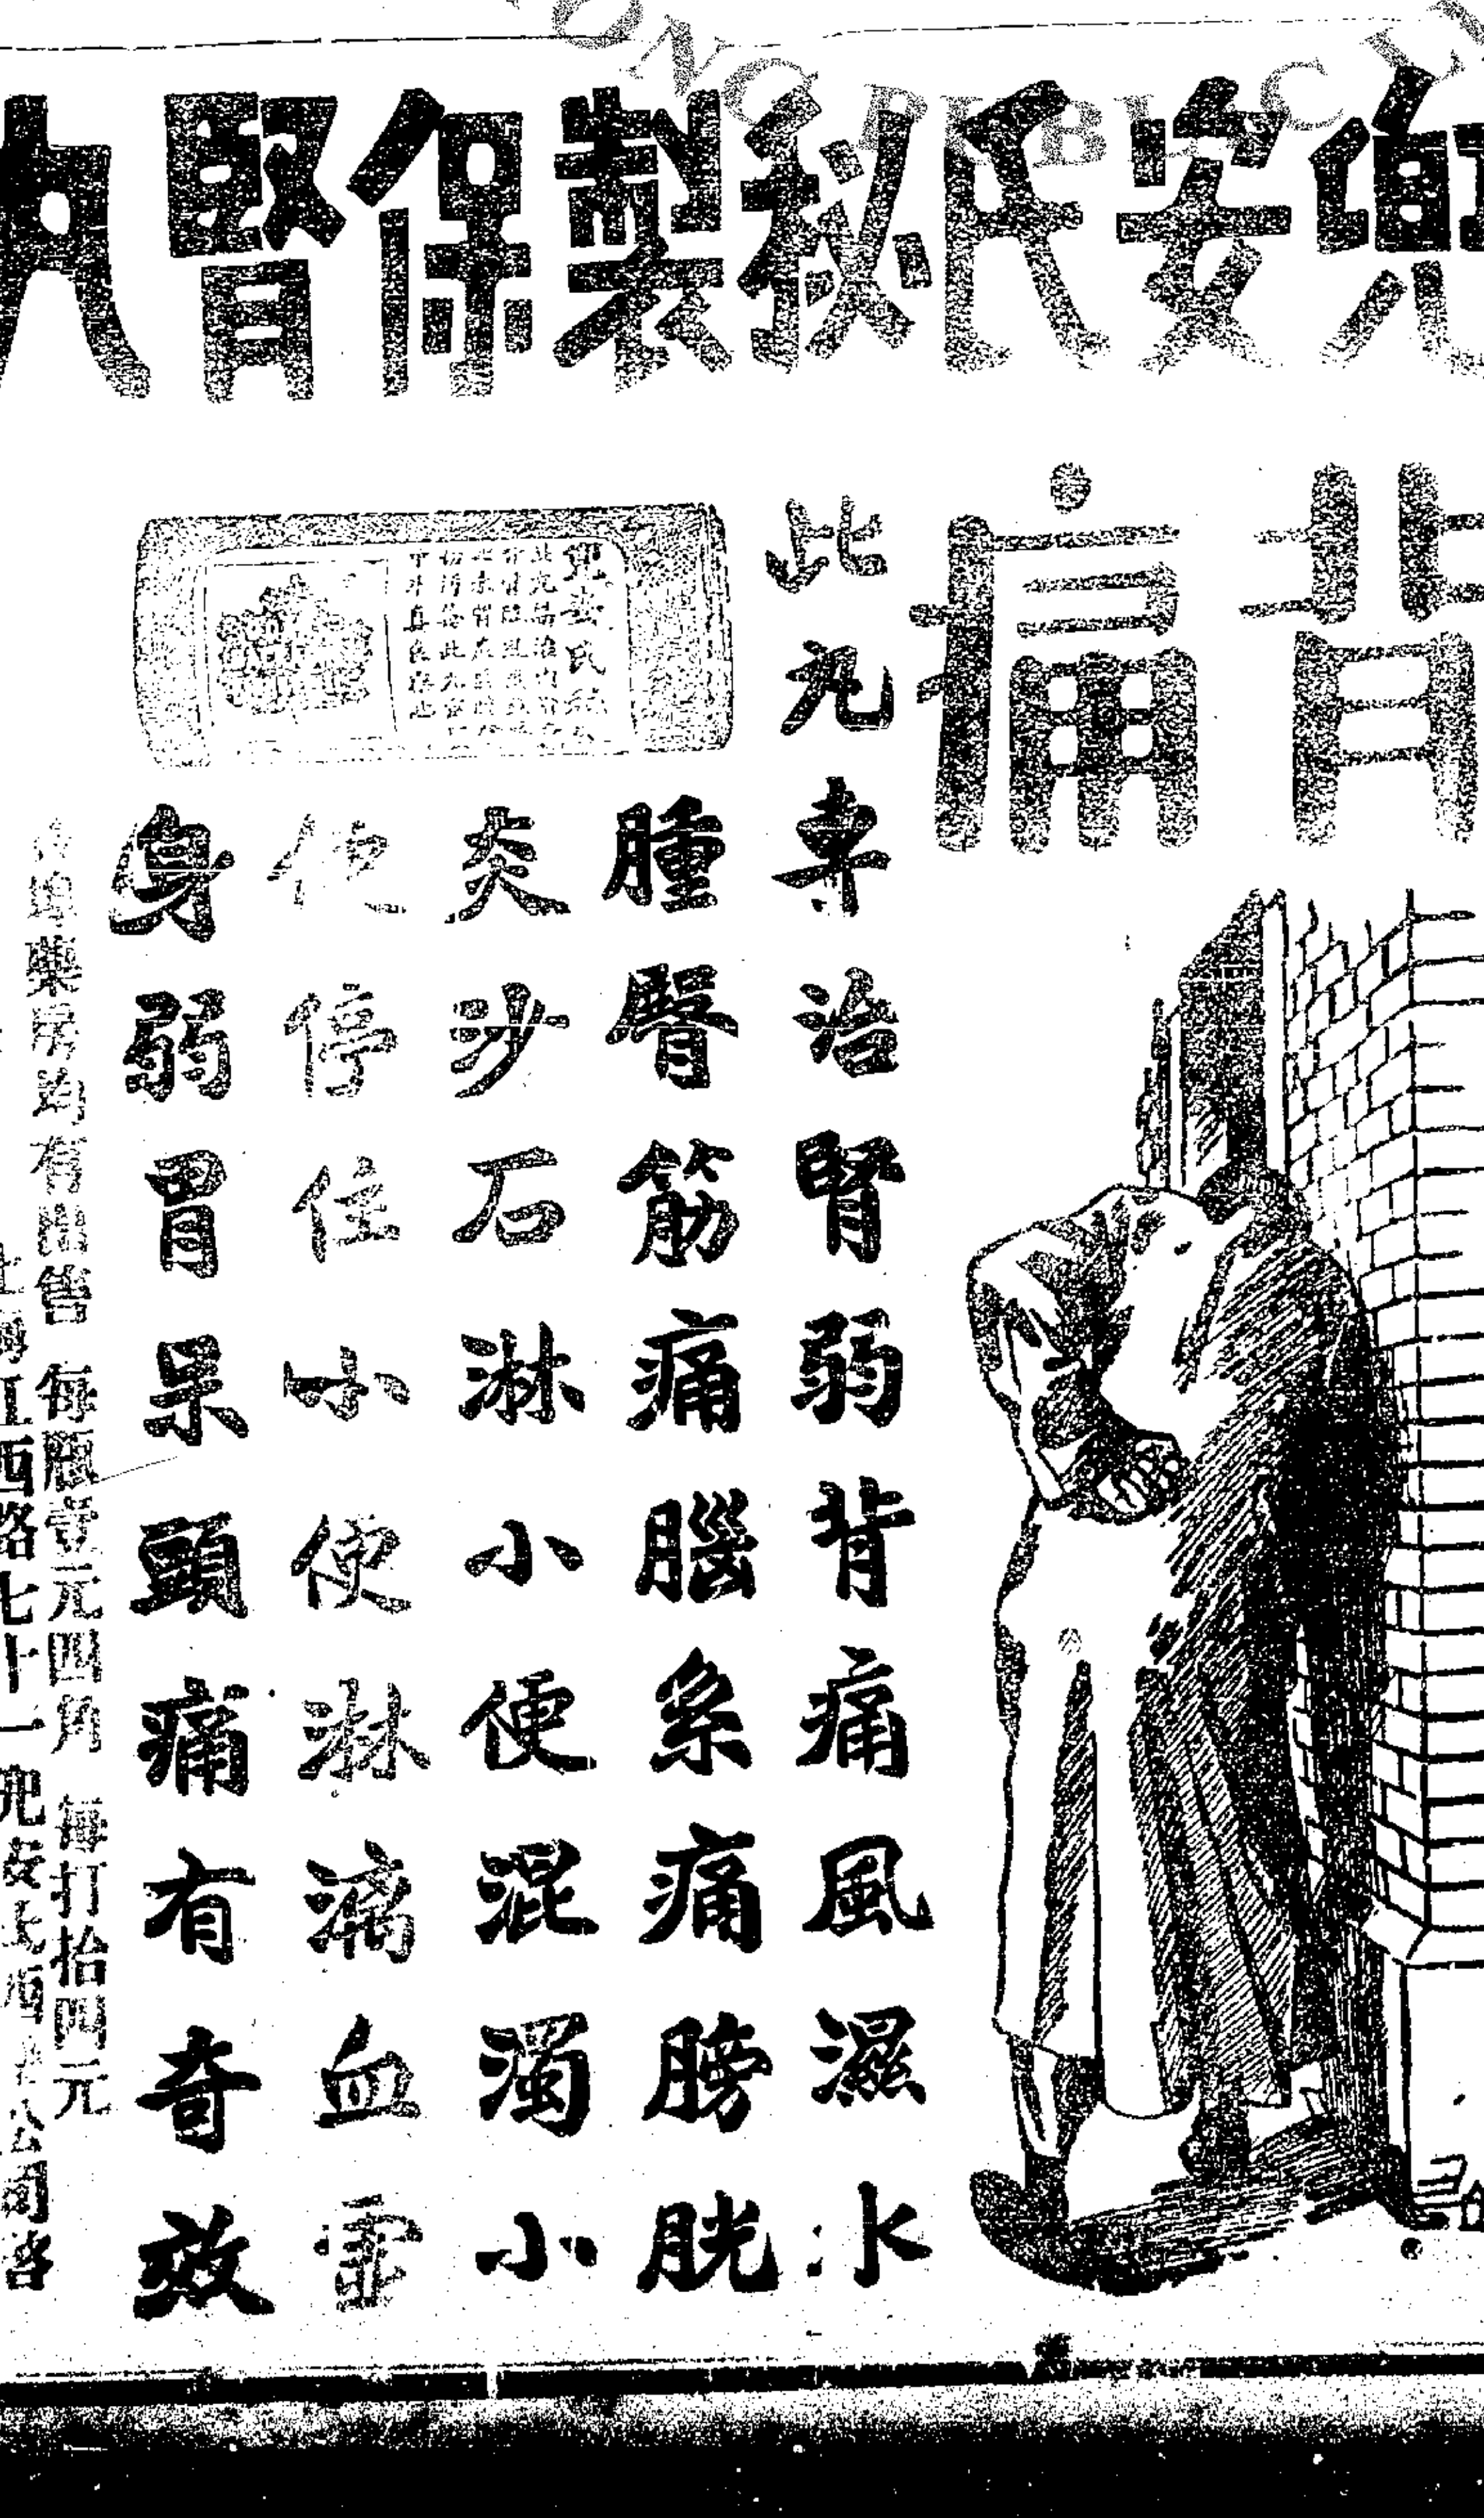 兜安氏秘製保腎丸
背痛
此丸專治腎弱背痛風濕水
腫臀筋痛腦系痛膀胱
炎沙石淋小便混濁小
便停住小便淋漓血
身弱胃呆頭痛有奇效
藥房均有出售 每瓶壹元四角 每打拾四元
江西路七十一兜安氏西公司啓